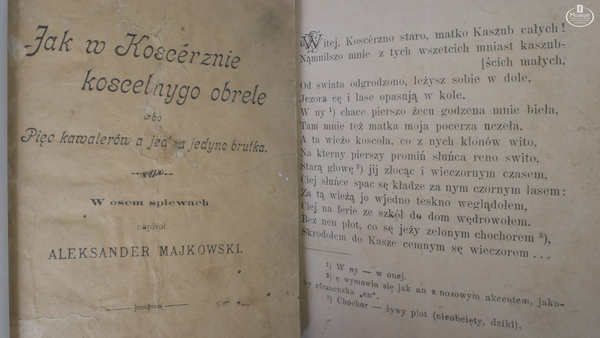 Jak w Koscérznie
koscelnygo obrele
abo
Pięc kawalerów a jedna jedyno brutka.
W osem spiewach
napisoł
ALEKSANDER MAJKOWSKI.
Witej, Koscérzno staro, matko Kaszub całych!
Nąmnilszo mnie z tych wszetcich mniast kaszub-
[ścich małych,
Od swiata odgrodzono, leżysz sobie w dole,
Jezora cę i lase opasują w kole.
W ny ¹) chace pierszo żecu godzena mnie bieła,
Tam mnie też matka moja pocerza uczeła.
A ta wieżo koscoła, co z nych klonów wito,
Na kterny pierszy promiń słuńca reno swito,
Starą głowę ²) jij złocąc i wieczornym czasem,
Ciej słuńce spac sę kładze za nym czornym lasem:
Za tą wieżą jo wjedno teskno weglądołem,
Ciej na ferie ze szkół do dom wędrowołem.
Bez nen płot, co sę jeży zelonym chochorem ³),
Skrodołem do Kasze cemnym sę wieczorem . . .
¹) W ny — w onej.
²) ę wymawia się jak an z nosowym akcentem, jako-
by zfrancuzka „en".
³) Chochor — żywy płot (nieobcięty, dziki).